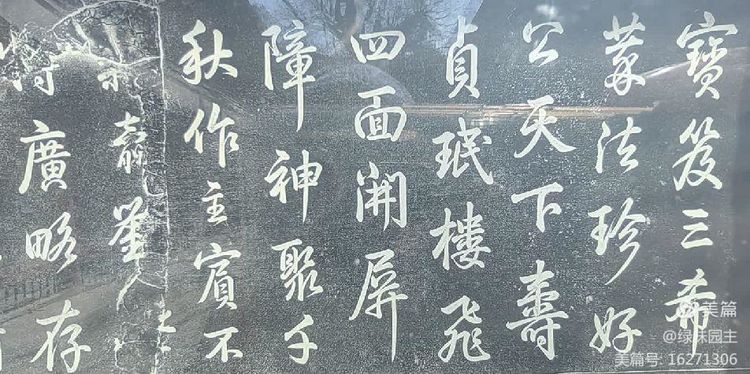 寶笈三希
萃法珍好
公天下壽
貞珉樓飛
四面開屏
障神聚千
秋作主賓不
廣略存
美篇
美篇号: 16271306